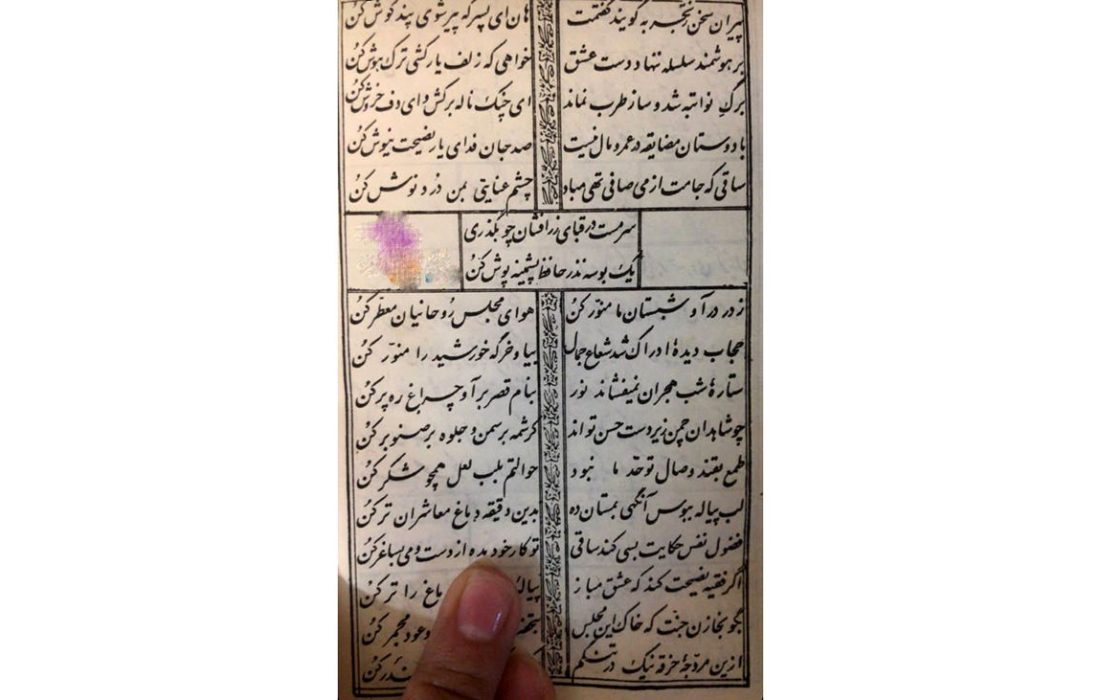 پیران سخن بتجربه گویند گفتمت هان ای پسر که پیر شوی پند گوش کن
بر هوشمند سلسله ننهاد دست عشق خواهی که زلف یار کشی ترک هوش کن
برگ نوا تبه شد و ساز طرب نماند ای چنگ ناله برکش و ای دف خروش کن
با دوستان مضایقه در عمر و مال نیست صد جان فدای یار نصیحت نیوش کن
ساقی که جامت از می صافی تهی مباد چشم عنایتی بمن درد نوش کن
سرمست در قبای زرافشان چو بگذری
یک بوسه نذر حافظ پشمینه پوش کن
ز در درآ و شبستان ما منور کن هوای مجلس روحانیان معطر کن
حجاب دیدۀ ادراک شد شعاع جمال بیا و خرگه خورشید را منور کن
ستارۀ شب هجران نمیفشاند نور ببام قصر برآ و چراغ ره بر کن
چو شاهدان چمن زیردست حسن تواند کرشمه بر سمن و جلوه بر صنوبر کن
طمع بقند وصال تو حد ما نبود حوالتم بلب لعل همچو شکر کن
لب پیاله ببوس آنگهی بمستان ده بدین دقیقه دماغ معاشران تر کن
فضول نفس حکایت بسی کند ساقی تو کار خود مده از دست و می بساغر کن
اگر فقیه نصیحت کند که عشق مباز پیاله باغ را تر کن
بگو بخازن جنت که خاک این مجلس بتحفه و عود مجمر کن
ازین مزدجۀ خرقه نیک در تنگم کن